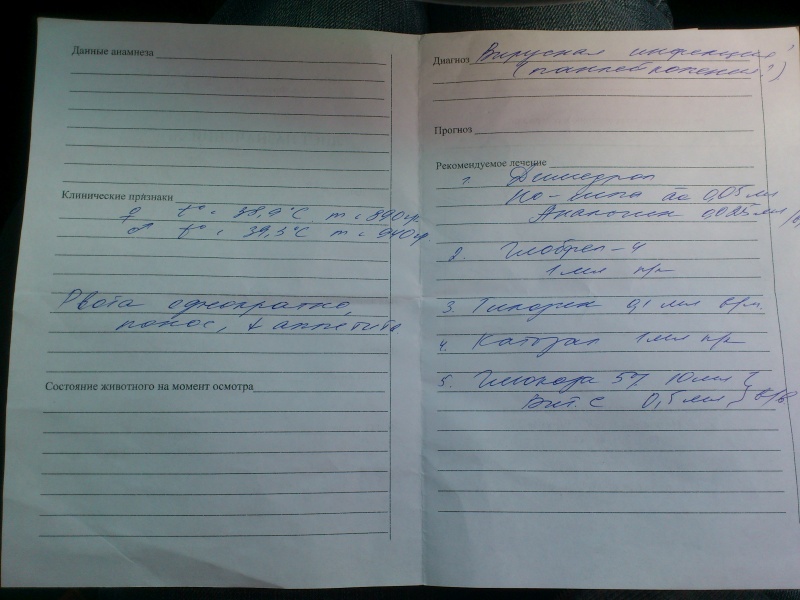 Данные анамнеза
Клинические признаки
♀ t° = 38,9°C m = 890гр.
♂ t° = 39,3°C m = 940гр.
Рвота однократно,
понос, ↓ аппетита
Состояние животного на момент осмотра
Диагноз Вирусная инфекция
(панлейкопения?)
Прогноз
Рекомендуемое лечение
1. Димедрол
Но-шпа āā 0,05 мл
Анальгин 0,025 мл
2. Глобфел-4
1 мл п/к
3. 0,1 мл в/м.
4. Катозал 1 мл п/к
5. Глюкоза 5% 10 мл }
Вит. С 0,5 мл } в/в